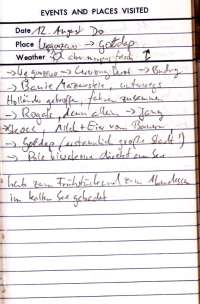 EVENTS AND PLACES VISITED
Date 12. August Do
Place → Gołdap
Weather aber morgens frisch
→ → → Budry
→ Banie Mazurskie, unterwegs
Holländer getroffen, fahren zusammen
→ Rogale, dann allein →
Milch + Eier vom Bauern
→ Gołdap (erstaunlich große Stadt!)
→ Pole biwakowe direkt am See
heute zum Frühstück und zum Abendessen
im kalten See gebadet